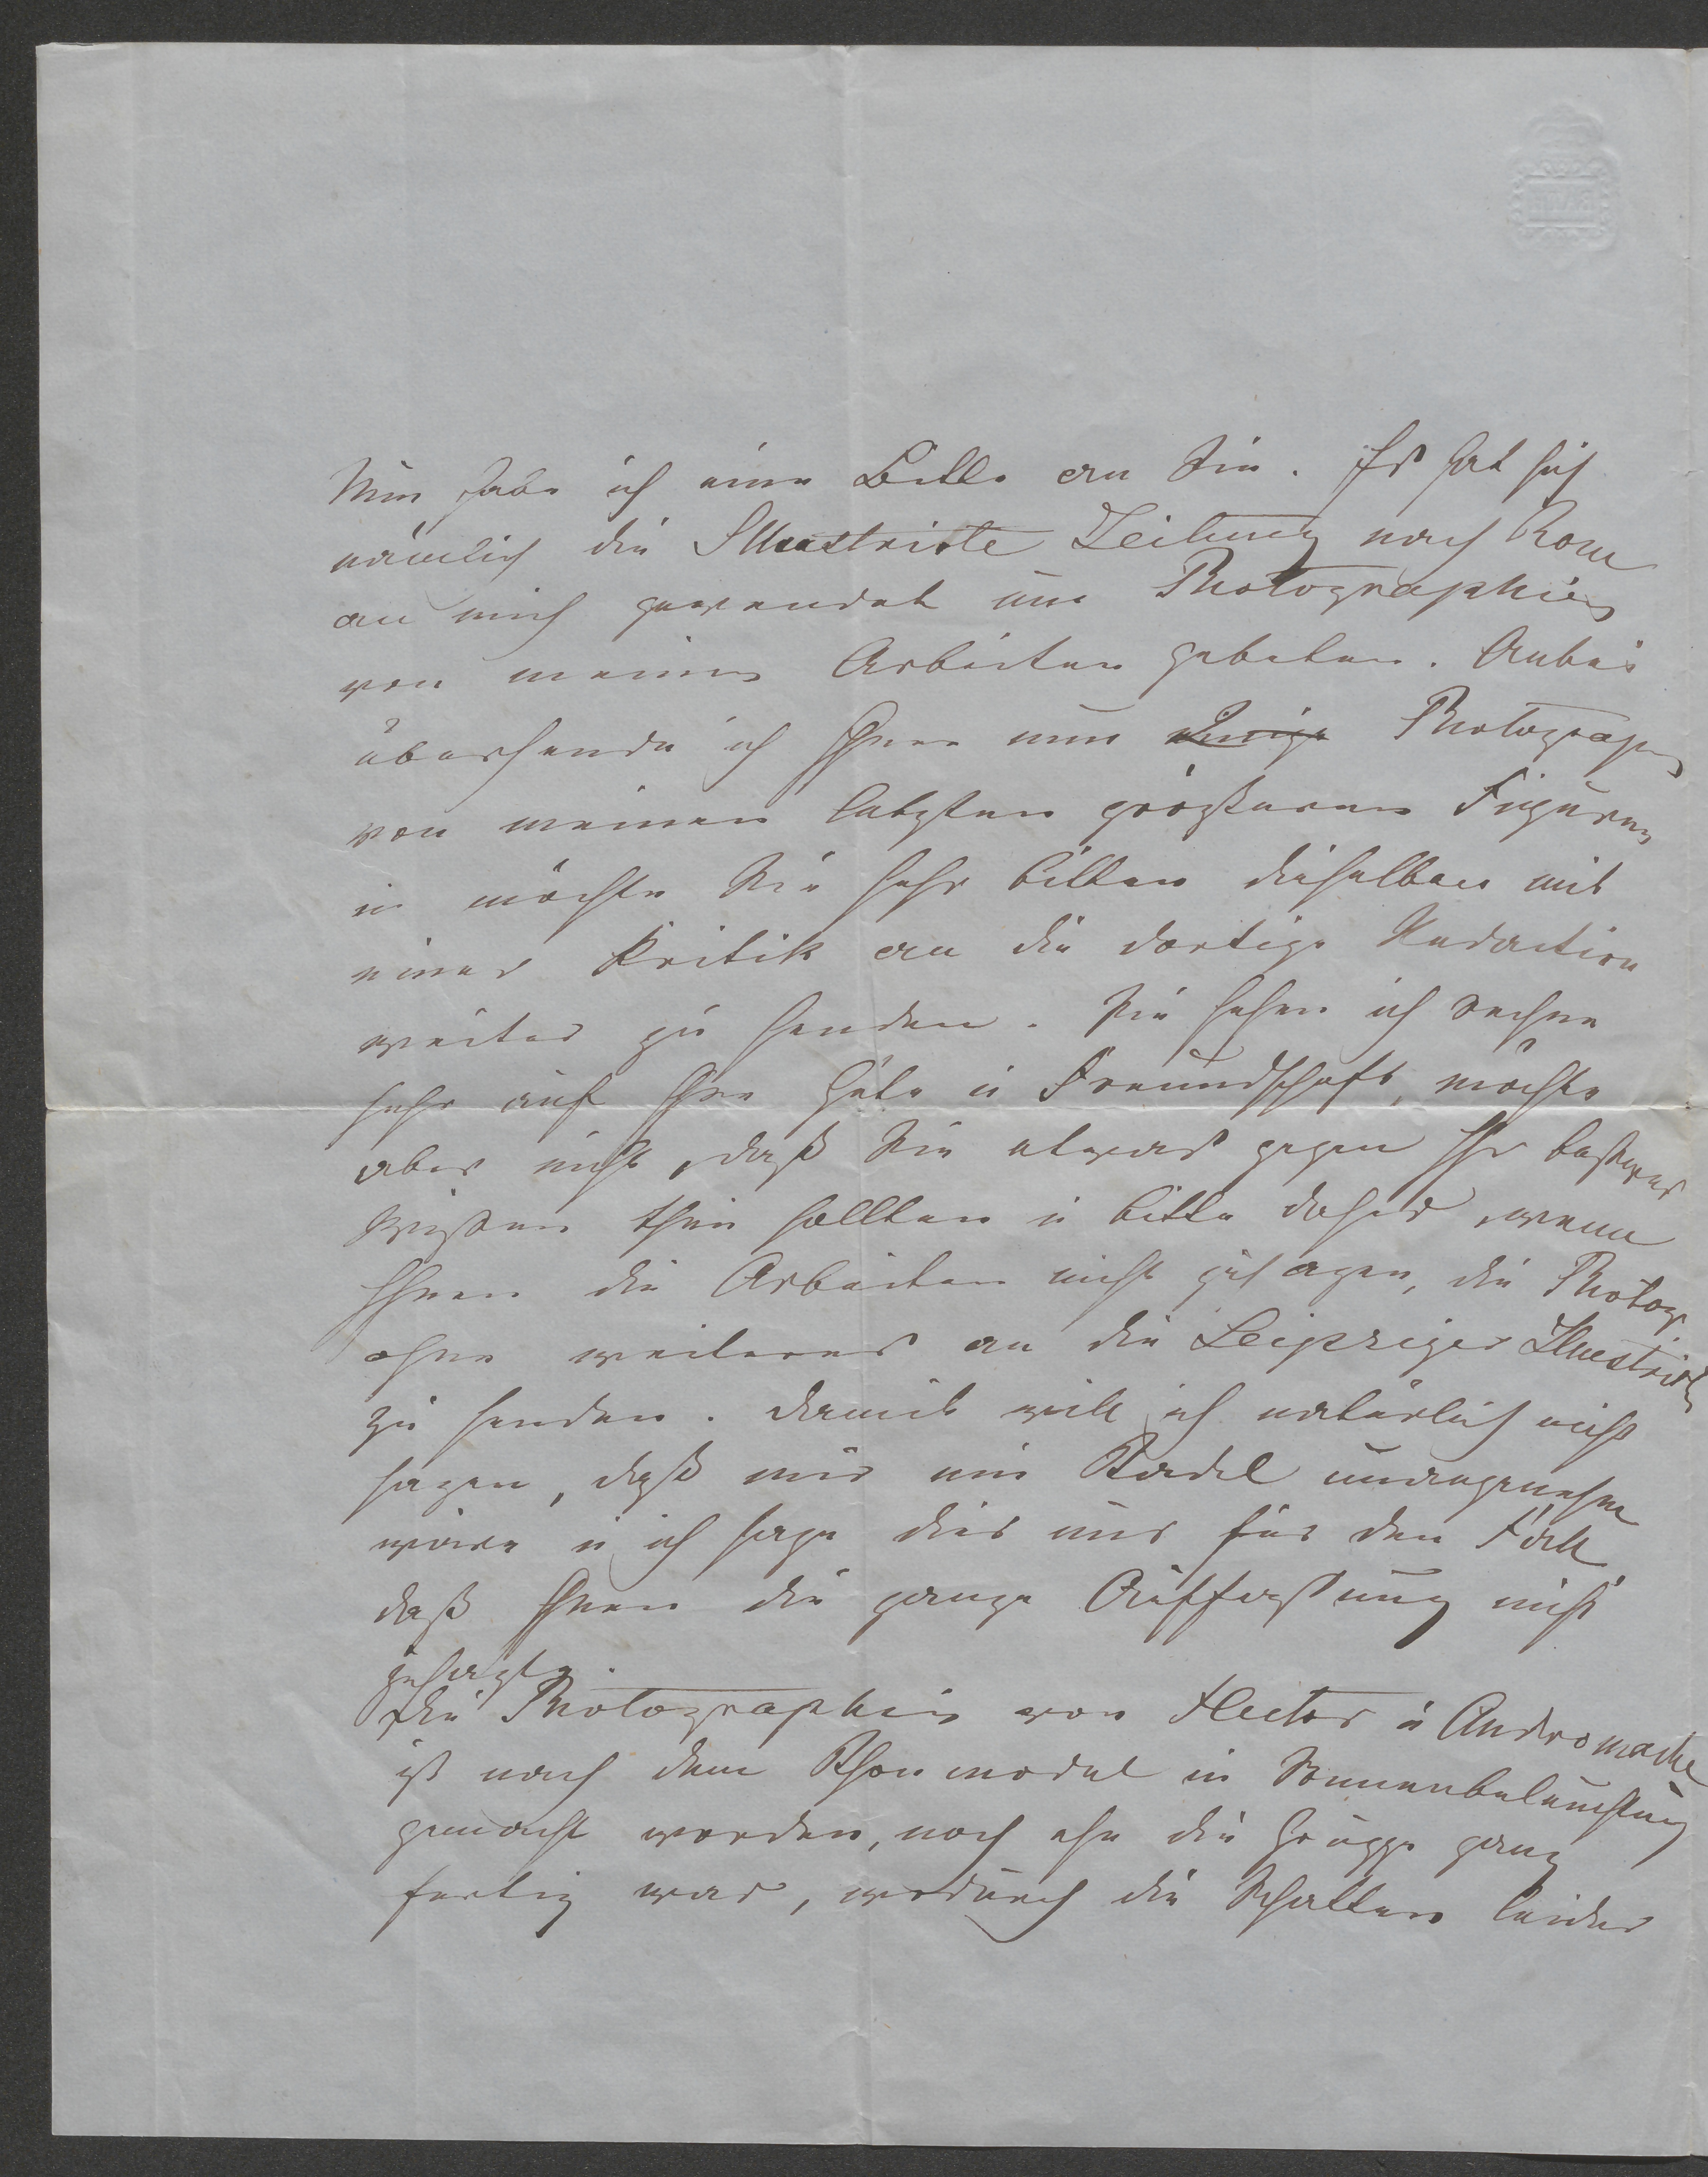 Nun habe ich eine Bitte an Sie. Es hat sich
nämlich die Illustrirte Zeitung nach Rom
an mich gewendet um Photographien
von meinen Arbeiten gebeten. Anbei
übersende ich Ihnen nun einige Photograph
von meinen letzten größeren Figuren
u möchte Sie sehr bitten dieselben mit
einer Kritik an die dortige Redaction
weiter zu senden. Sie sehen ich rechne
sehr auf Ihre Güte u Freundschaft, möchte
aber nicht, daß Sie etwas gegen Ihr besseres
Wissen thun sollten u bitte daher, wenn
Ihnen die Arbeiten nicht zusagen, die Photog
ohne weiteres an die Leipziger Illustrirte
zu senden. Damit will ich natürlich nicht
sagen, daß mir ein Tadel unangenehm
wäre u ich sage dies nur für den Fall
daß Ihnen die ganze Auffassung nicht
zusagte.
Die Photographie von Hector u Andromache
ist nach dem Thonmodel in Sonnenbeleuchtung
gemacht worden, noch ehe die Gruppe ganz
fertig war, wodurch die Schatten leider